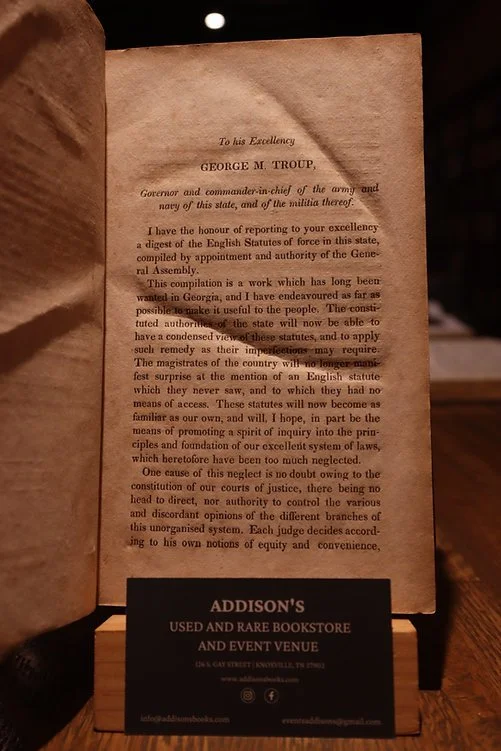 To his Excellency
GEORGE M. TROUP,
Governor and commander-in-chief of the army and
navy of this state, and of the militia thereof.
I have the honour of reporting to your excellency
a digest of the English Statutes of force in this state,
compiled by appointment and authority of the Gene-
ral Assembly.
This compilation is a work which has long been
wanted in Georgia, and I have endeavoured as far as
possible to make it useful to the people. The consti-
tuted authorities of the state will now be able to
have a condensed view of these statutes, and to apply
such remedy as their imperfections may require.
The magistrates of the country will no longer mani-
fest surprise at the mention of an English statute
which they never saw, and to which they had no
means of access. These statutes will now become as
familiar as our own, and will, I hope, in part be the
means of promoting a spirit of inquiry into the prin-
ciples and foundation of our excellent system of laws,
which heretofore have been too much neglected.
One cause of this neglect is no doubt owing to the
constitution of our courts of justice, there being no
head to direct, nor authority to control the various
and discordant opinions of the different branches of
this unorganised system. Each judge decides accord-
ing to his own notions of equity and convenience,
ADDISON'S
USED AND RARE BOOKSTORE
AND EVENT VENUE
126 S. GAY STREET | KNOXVILLE, TN 37902
www.addisonsbooks.com
info@addisonsbooks.com
eventsaddisons@gmail.com